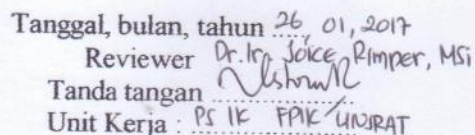 Tanggal, bulan, tahun 26, 01, 2017
Reviewer Dr. Ir. Joice Rimper, MSi
Tanda tangan
Unit Kerja : PS IK FPIK UNSRAT